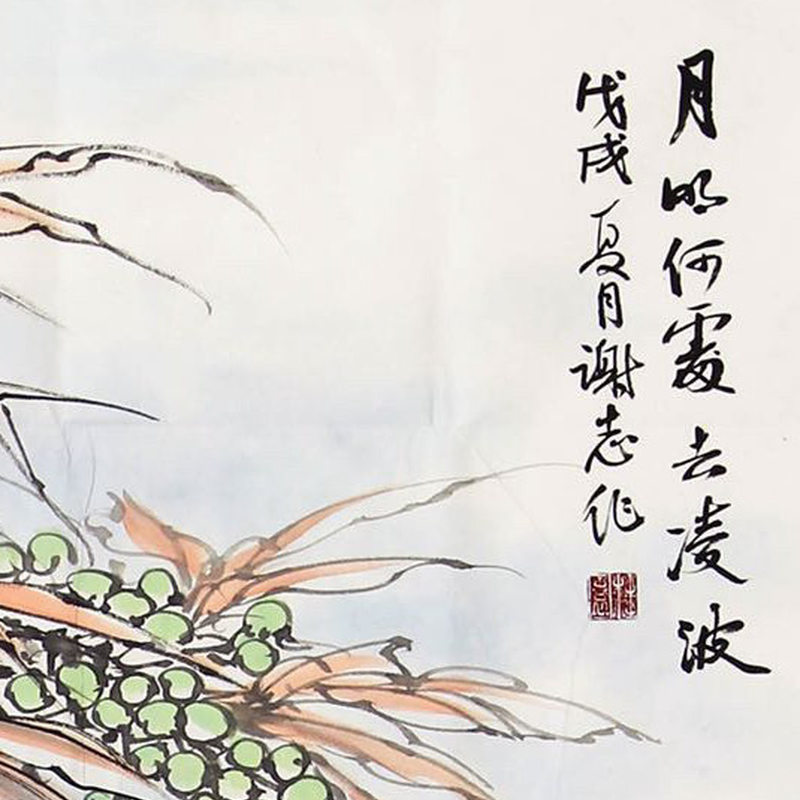 月明何處去凌波
戊戌夏月谢志作